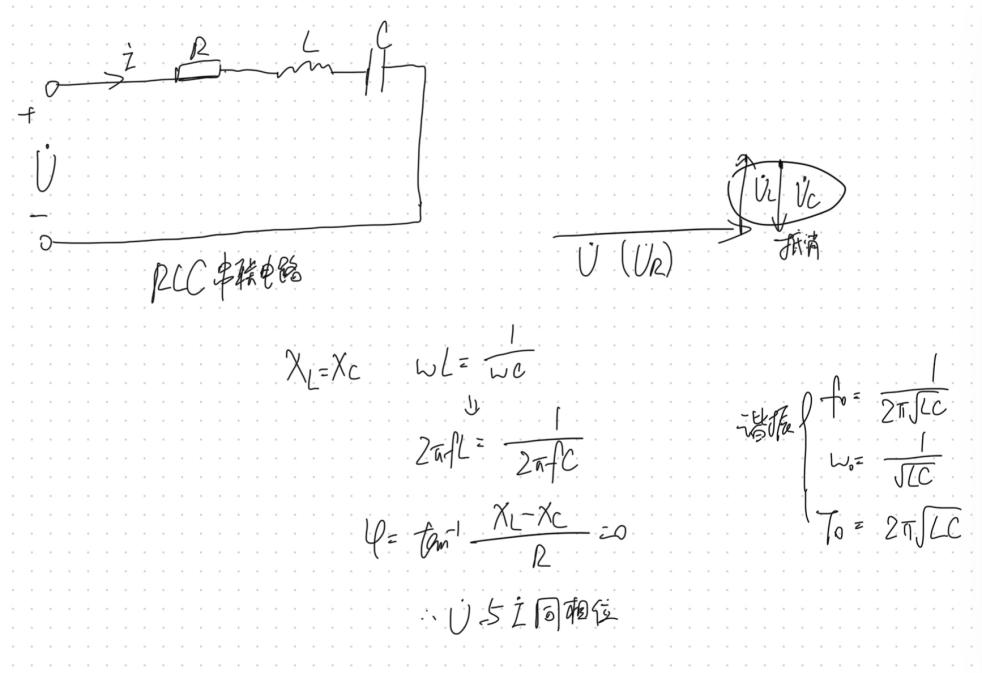 İ R L C
+
U̇
−
RLC 串联电路
U̇L U̇C
抵消
U̇ (U̇R)
XL=XC ωL= 1/ωC
⇓
2πfL= 1/2πfC
φ= tan⁻¹ XL-XC/R =0
∴ U̇ 与 İ 同相位
谐振 { f0= 1/2π√LC
ω0= 1/√LC
T0= 2π√LC